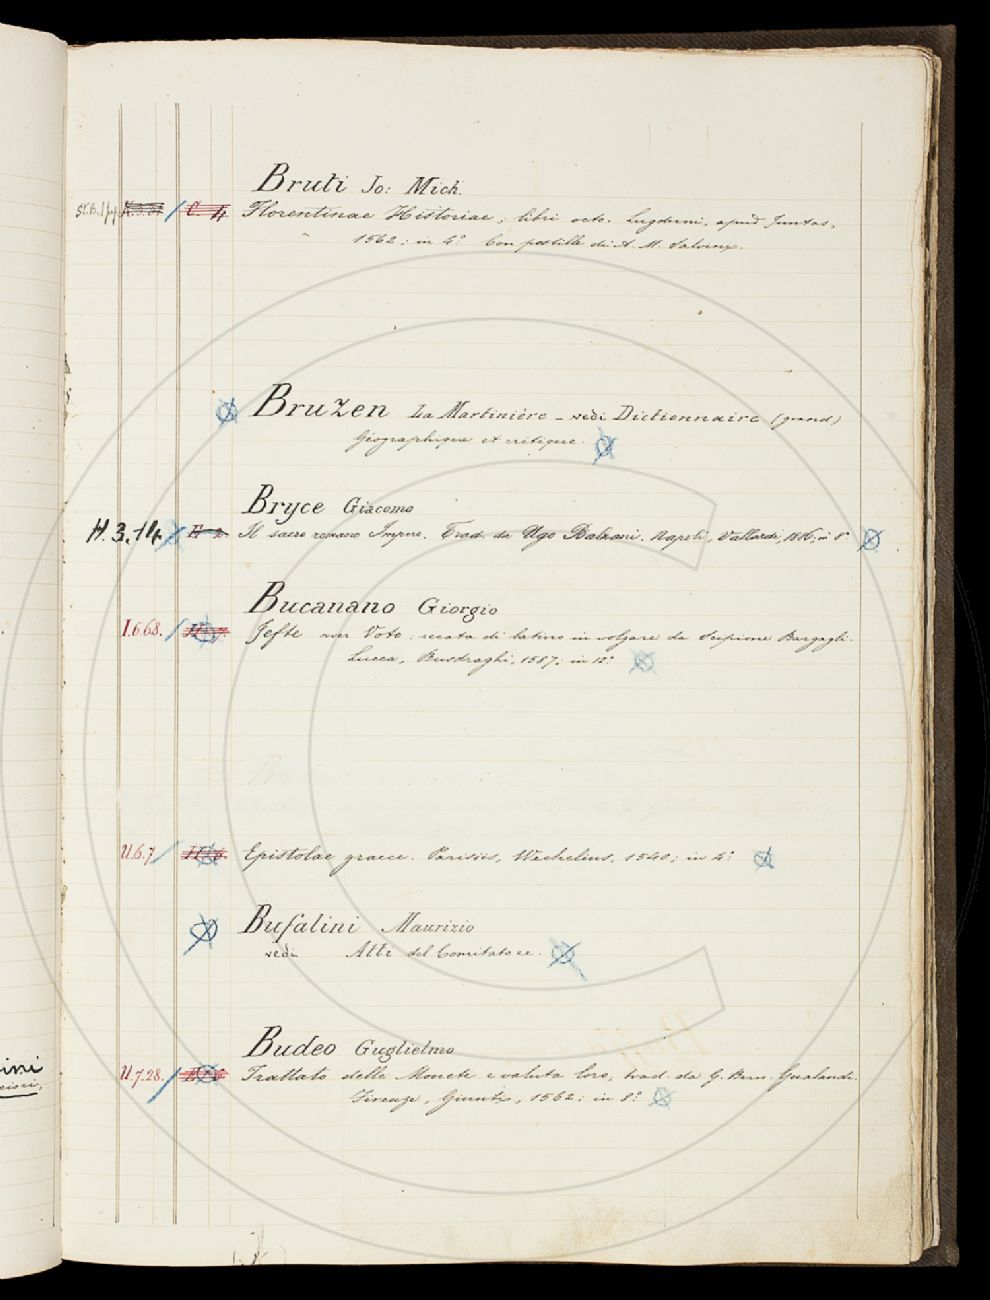 Bruti Jo: Mich.
St.B. C. 4. Florentinae Historiae, libri octo. Lugduni, apud Juntas,
1562; in 4.º Con postille di A. M. Salvini.
Bruzen La Martinière - vedi Dictionnaire (grand)
Géographique et critique.
Bryce Giacomo
H.3.14. E 2. Il sacro romano Impero. Trad. da Ugo Balzani. Napoli, Vallardi, 1886; in 8º
Bucanano Giorgio
I.6.68. Jefte over Voto: recata di latino in volgare da Scipione Bargagli.
Lucca, Busdraghi, 1587; in 12º
U.6.7 Epistolae graece. Parisiis, Wechelius, 1540; in 4.º
Bufalini Maurizio
vedi Atti del Comitato ec.
Budeo Guglielmo
U.7.28. Trattato delle Monete e valuta loro; trad. da G. Bern. Gualandi.
Firenze, Giunti, 1562; in 8º
ini